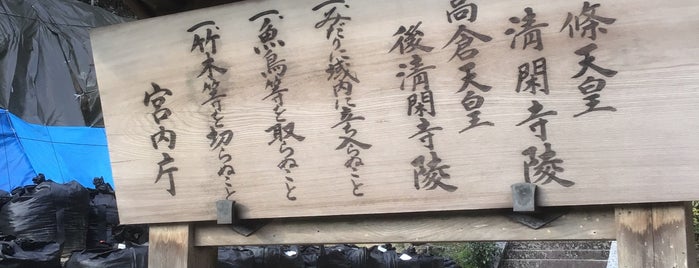 條天皇
清閑寺陵
高倉天皇
後清閑寺陵
一、みだりに域内に立ち入らぬこと
一、魚鳥等を取らぬこと
一、竹木等を切らぬこと
宮内庁